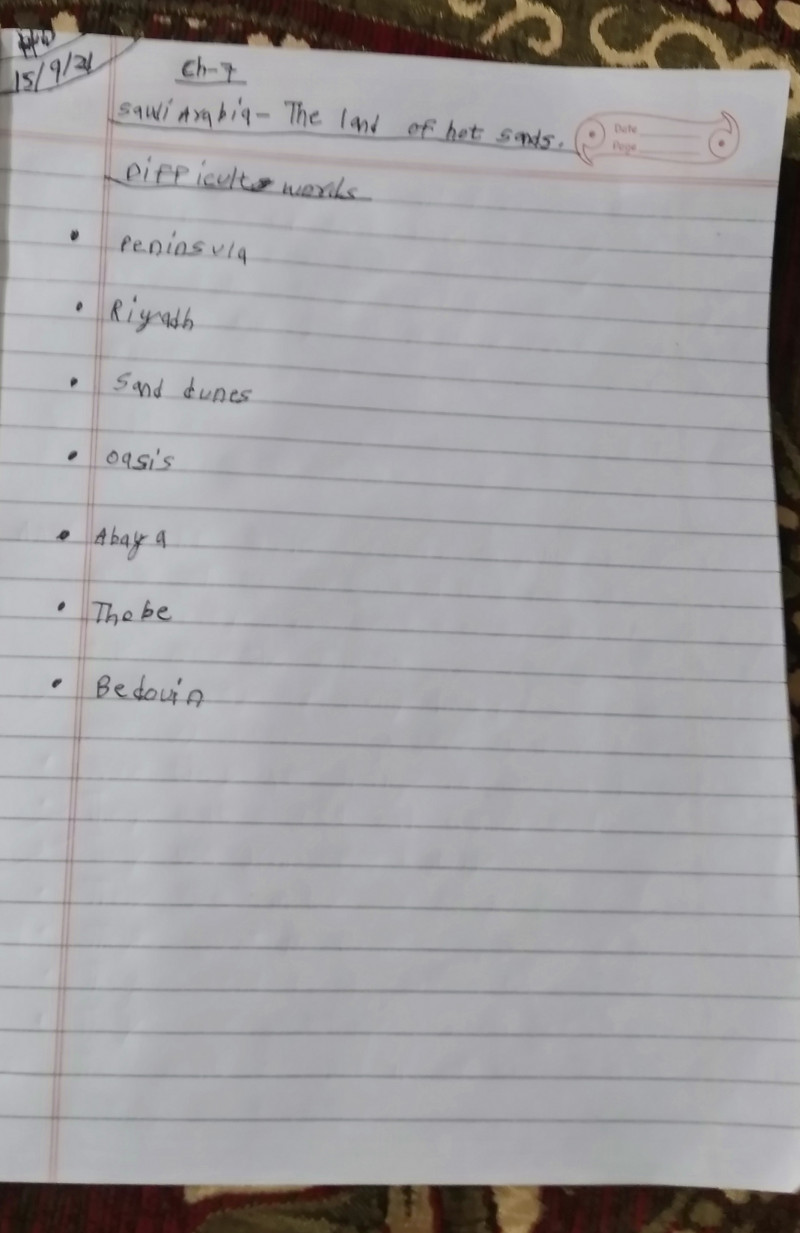 15/9/21
Ch-7
Sawi Arabia - The land of hot sands.
Date
Page
Difficult words
• Peninsula
• Riyadh
• Sand dunes
• Oasis
• Abaya
• Thobe
• Bedouin